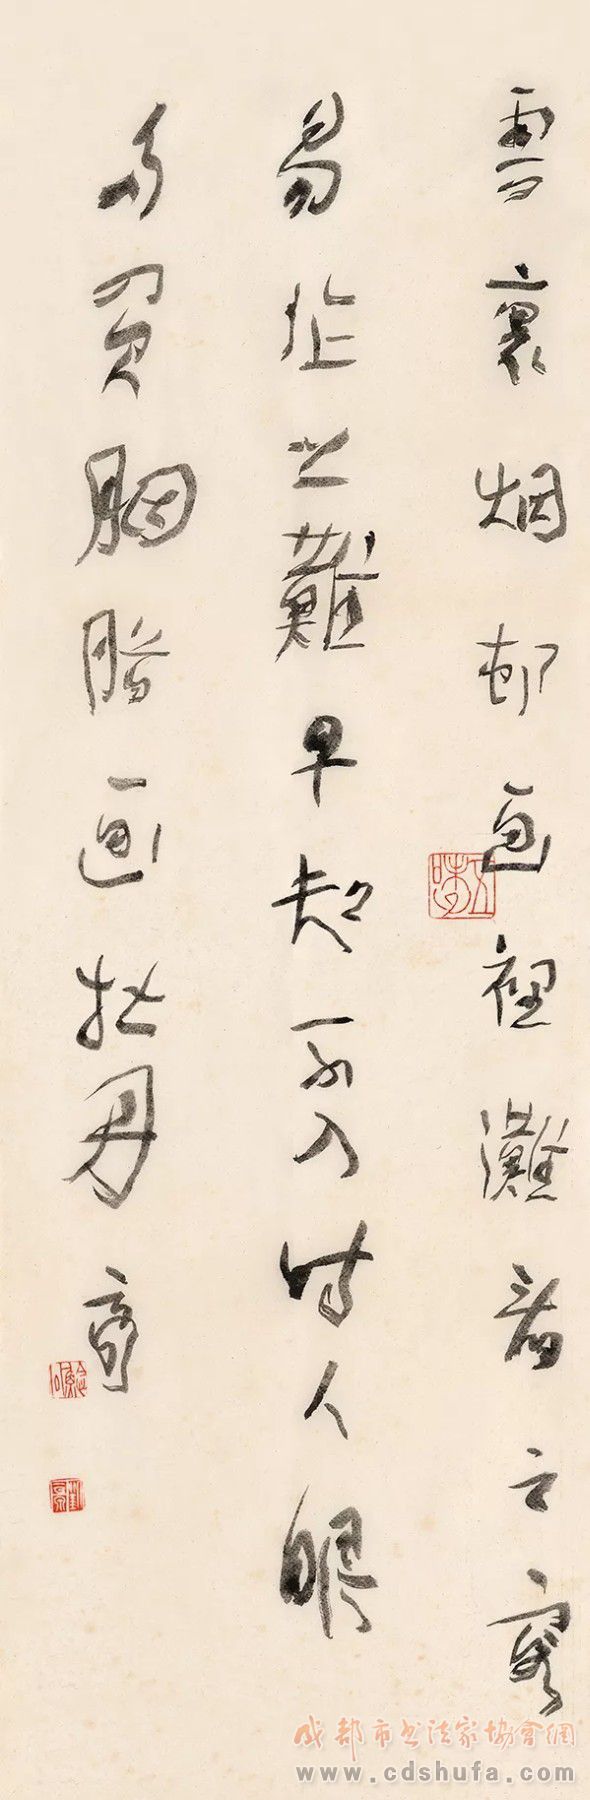 雪裏烟邨画裡灘看之容
易作之難早知不入時人眼
多買胭脂画牡丹
成都市书法家協會網
www.cdshufa.com